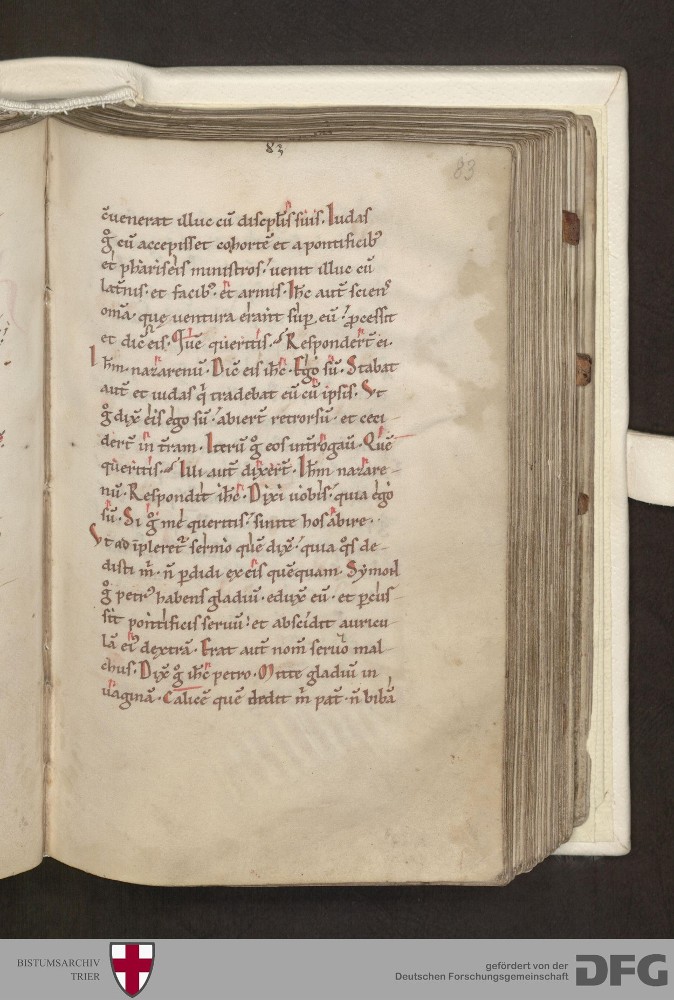 83
83
c̄uenerat illuc cū discipl̄is suis. Iudas
g̊ cū accepisset cohortē et a pontificib;
et phariseis ministros. uenit illuc cū
lat̄nis. et facib;. et armis. Ih̄c aut̄ sciens
om̄a. que uentura erant sup eū. ꝓcessit
et dic̄ eis. Quē queritis. Respondert̄ ei.
Ih̄m nazarenū. Dic̄ eis ih̄c. Ego sū. Stabat
aut̄ et iudas q̇ tradebat eū cū ipsis. Vt
g̊ dix̄ eis ego sū. abiert̄ retrorsū. et ceci-
dert̄ in tr̄am. Iterū g̊ eos int̄rogau̅. Quē
queritis. Illi aut̄ dixert̄. Ih̄m nazare-
nū. Respondit ih̄c. Dixi uobis. quia ego
sū. Si g̊ me queritis. sinite hos abire.
Vt adīpleret᷑ sermo quē dix̄. quia q̊s de-
disti m̄. n̄ ꝑdidi ex eis quēquam. Symon
g̊ petr᷒ habens gladiū. edux̄ eū. et ꝑcus-
sit pontificis seruū. et abscidit auricu-
lā ei᷒ dextrā. Erat aut̄ nom̄ seruo mal-
chus. Dix̄ g̊ ih̄c petro. Mitte gladiū in
uaginā. Calicē quē dedit m̄ pat̄. n̄ bibā
BISTUMSARCHIV
TRIER
gefördert von der
Deutschen Forschungsgemeinschaft
DFG